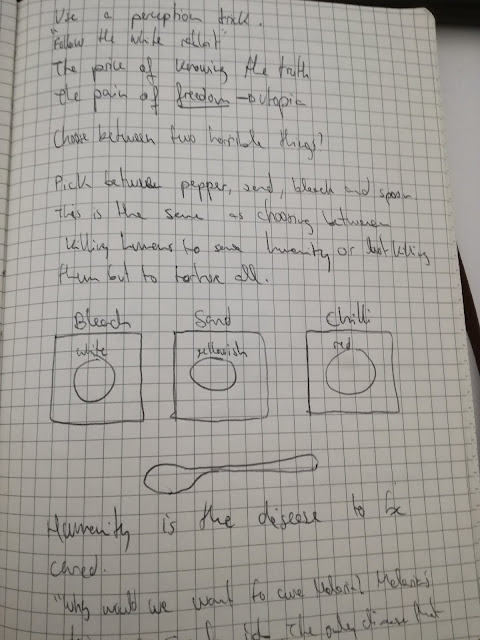 Use a perception trick.
"Follow the white rabbit"
The price of knowing the truth
the pain of freedom → utopia
Choose between two horrible things?
Pick between pepper, sand, bleach and spoon
this is the same as choosing between
killing humans to save humanity or not killing
them but to torture all.
Bleach Sand Chilli
white yellowish red
Humanity is the disease to be
cured.
"Why would we want to cure
The only disease that